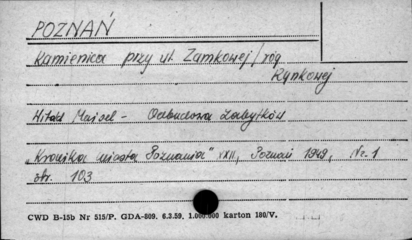 POZNAŃ
Kamienica przy ul. Zamkowej/róg
Rynkowej
Witold Maisel - Odbudowa Zabytków
„Kronika miasta Poznania" XXII, Poznań 1949, Nr. 1
str. 103
CWD B-15b Nr 515/P. GDA-809. 6.3.59. 1.000.000 karton 180/V.